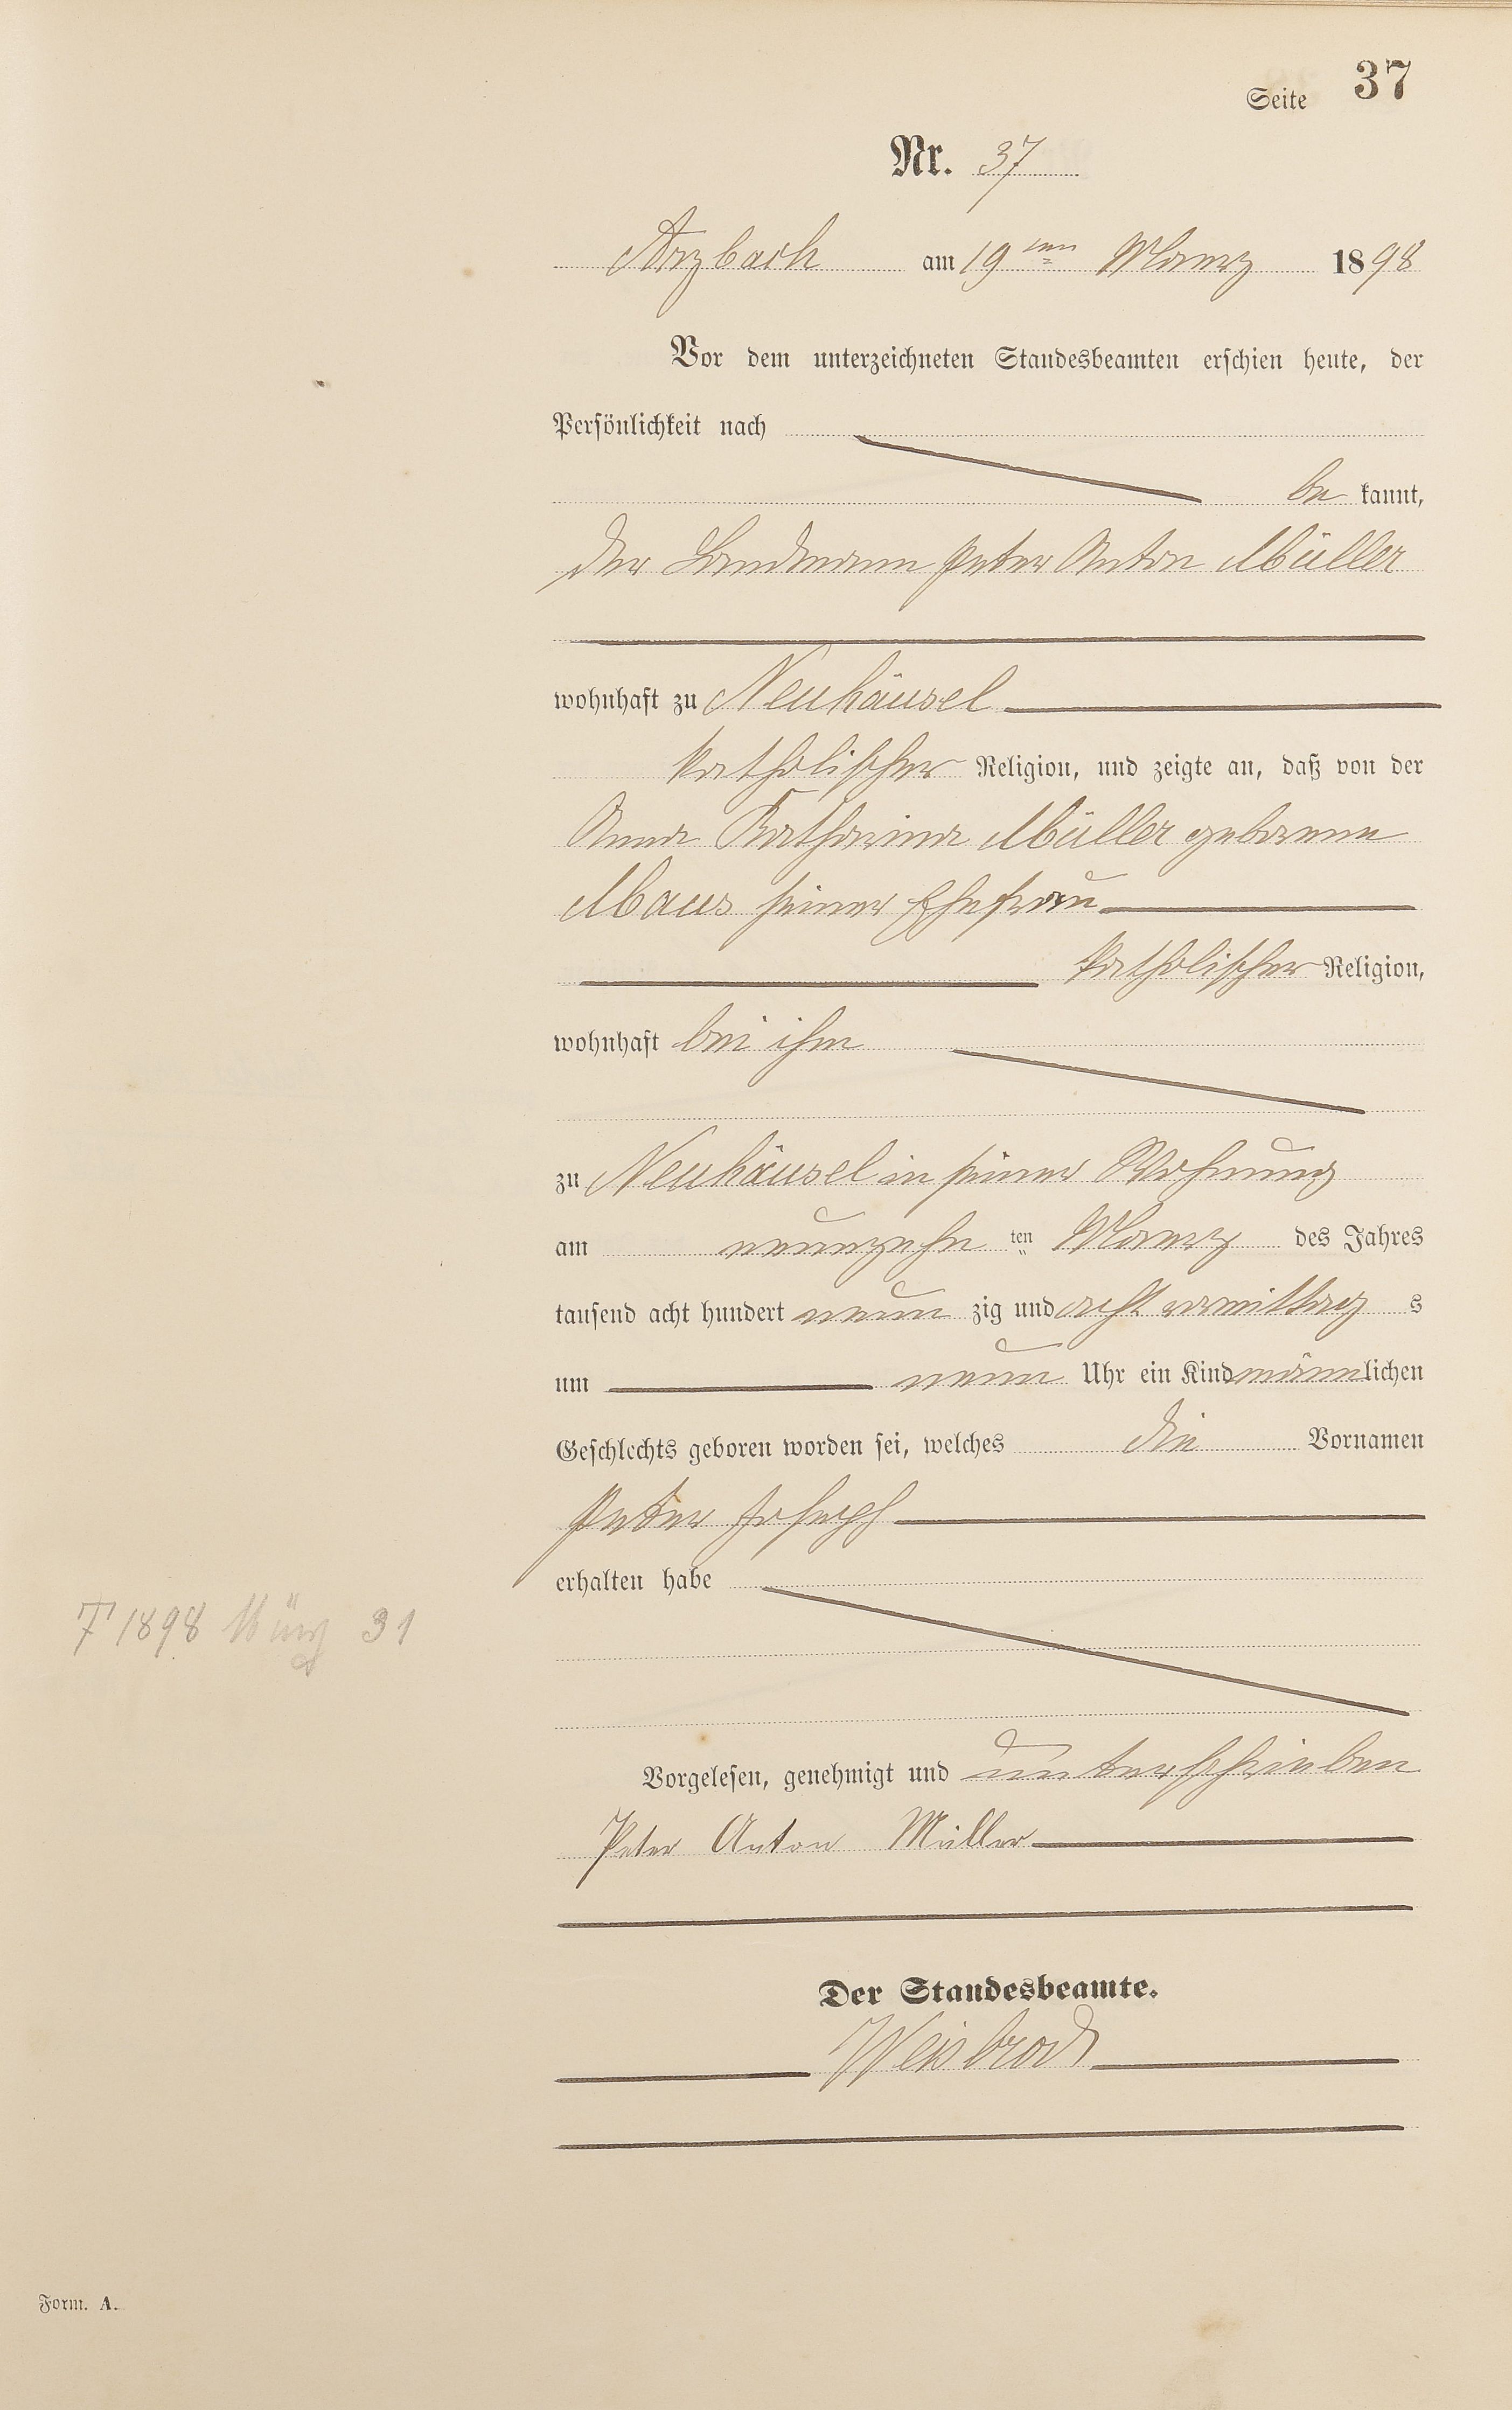 Seite 37
Nr. 37
Arzbach am 19ten Maerz 1898
Vor dem unterzeichneten Standesbeamten erschien heute, der
Persönlichkeit nach
be kannt,
der Landmann Peter Anton Müller
wohnhaft zu Neuhäusel
katholischer Religion, und zeigte an, daß von der
Anna Katharina Müller geborene
Maus seiner Ehefrau
katholischer Religion,
wohnhaft bei ihm
zu Neuhäusel in seiner Wohnung
am neunzehn ten Maerz des Jahres
tausend acht hundert neun zig und acht vormittag s
um neun Uhr ein Kind männlichen
Geschlechts geboren worden sei, welches die Vornamen
Peter Joseph
erhalten habe
T 1898 März 31
Vorgelesen, genehmigt und unterschrieben
Peter Anton Müller
Der Standesbeamte.
Weisbrod
Form. A.